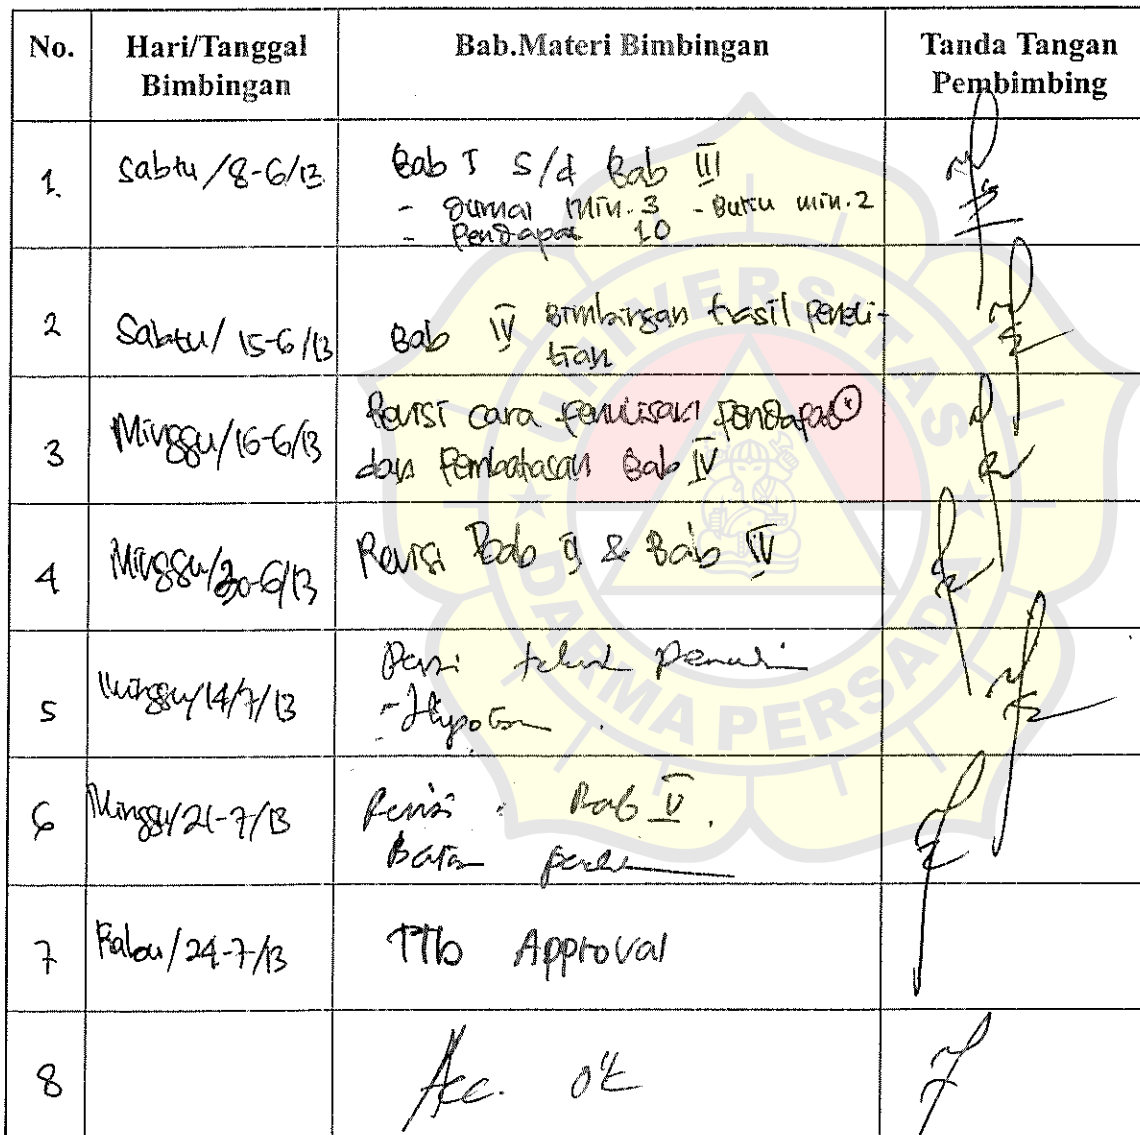 No. Hari/Tanggal Bimbingan Bab.Materi Bimbingan Tanda Tangan Pembimbing
1. Sabtu /8-6/13 Bab I s/d Bab III
- Jurnal Min. 3 - Buku min. 2
- Pendapat 10
2 Sabtu/ 15-6/13 Bab IV Bimbingan Hasil Peneli-
tian
3 Minggu/16-6/13 Revisi cara Penulisan Pendapat
dan Pembatasan Bab IV
4 Minggu/30-6/13 Revisi Bab II & Bab IV
5 Minggu/14/7/13 Revisi
-
6 Minggu/21-7/13 Revisi : Bab V.
Batas
7 Rabu/24-7/13 TTD Approval
8 Acc. ok
UNIVERSITAS
DARMA PERSADA